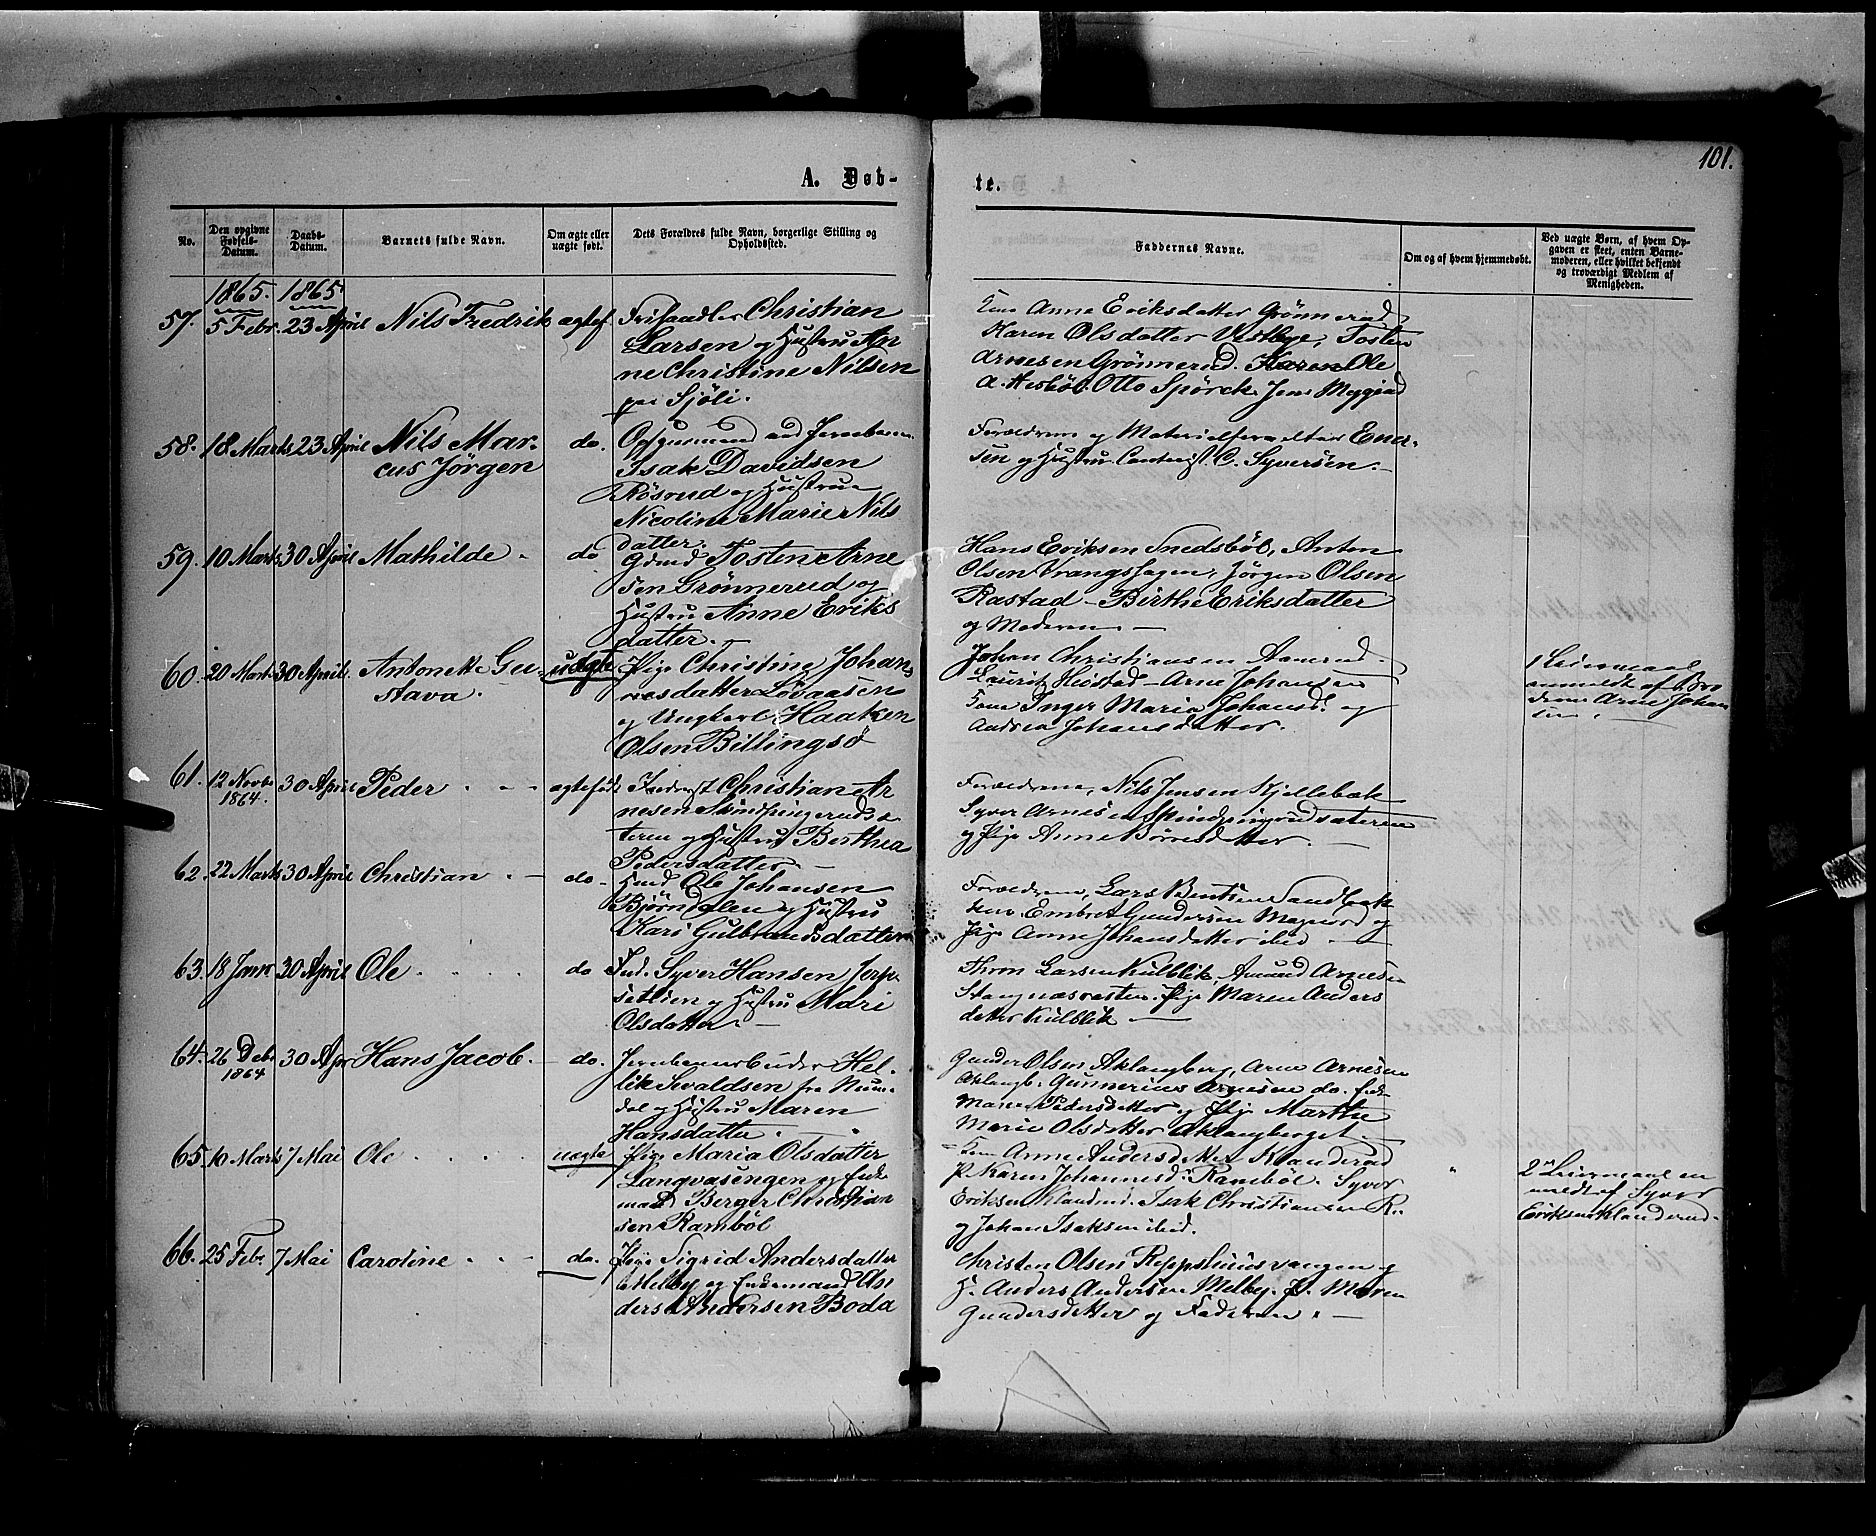 101.
A. Døb-
te.
No.
Den opgivne Fødsels-Datum.
Daabs-Datum.
Barnets fulde Navn.
Om ægte eller uægte født.
Dets Forældres fulde Navn, borgerlige Stilling og Opholdssted.
Faddernes Navne.
Om og af hvem hjemmedøbt.
Ved uægte Børn, af hvem Op-
gaven er skeet, enten Barne-
moderen, eller hvilket bekjendt
og troværdigt Medlem af
Menigheden.
1865. 1865.
57. 5 Febr. 23 April Nils Fredrik ægtef.
Christian
Larsen og Hustru An
ne Christine Nilsen
paa Sjöli.
Anne Eriksdatter Grönnerud
Karen Olsdatter Vestbye, Tosten
Arnesen Grönnerud. Ole
Otto Spörck Jens
58. 18 Marts 23 April Nils Mar-
cus Jörgen
do.
Isak Davidsen
Rösrud og Hustru
Nicoline Marie Nils
datter.
Forældrene og Materialforvalter
sen og Hustru C. Syversen.
59. 10 Marts 30 April Mathilde do
Gdmd Tosten Arne
sen Grönnerud og
Hustru Anne Eriks
datter.
Hans Eriksen Snedsböl, Anton
Olsen Vrangshagen, Jörgen Olsen
Rastad - Birthe Eriksdatter
og Moderen.
60. 20 Marts 30 April Antonette Gu-
stava.
uægte
Pige Christine Johan
nesdatter Lövaasen
og Ungkarl Haaken
Olsen Billingsö
Johan Christiansen
Lauritz - Arne Johansen
Inger Maria Johansd. og
Andrea Johansdatter.
1 Leiermaal
anmeldt af Bro
deren Arne Johan
sen.
61. 12 Novbr
1864. 30 April Peder ægtefödt
Christian Ar
nesen
teren og Hustru Berthea
Pedersdatter
Forældrene, Nils Jensen Kjellebæk
Syver Arnesen
og Pige Anne Börresdatter.
62. 22 Marts 30 April Christian do.
Hmd Ole Johansen
Björndalen og Hustru
Kari Gulbrandsdatter
Forældrene, Lars Bentsen Sandbak
ken Embret Gundersen Magnord og
Pige Anne Johansdatter ibid.
63. 18 Janr 30 April Ole do
Ind. Syver Hansen Jerp
setlien og Hustru Mari
Olsdatter.
Thron Larsen Kulblik, Amund Arnesen
Pige Maren Anders
datter Kulblik
64. 26 Debr
1864 30 Apr Hans Jacob. do.
Hel-
lik Sevaldsen fra Num-
dal og Hustru Maren
Hansdatter.
Gunder Olsen Aklangberg, Arne Arnesen
Aklangb. Gunnerius Arnesen do.
Pedersdatter og Pige Marthe
Marie Olsdatter Aklangberget.
65. 10 Marts 7 Mai Ole uægte
Pige Maria Olsdatter
Langvasengen og Enke
mand Berger Christian
sen Ramböl
Kone Anne Andersdatter Klanderud
P. Karen Johannesd. Ramböl. Syver
Eriksen Klanderud. Isak Christiansen R.
og Johan Isaksen ibid.
2det Leiermaal an
meldt af Syver
Eriksen Klanderud.
66. 25 Febr. 7 Mai Caroline do.
Pige Sigrid Andersdatter
Melby og Enkemand An
ders Andersen Boda
Christen Olsen
H. Anders Andersen Melby. P. Maren
Gundersdatter og Faderen.